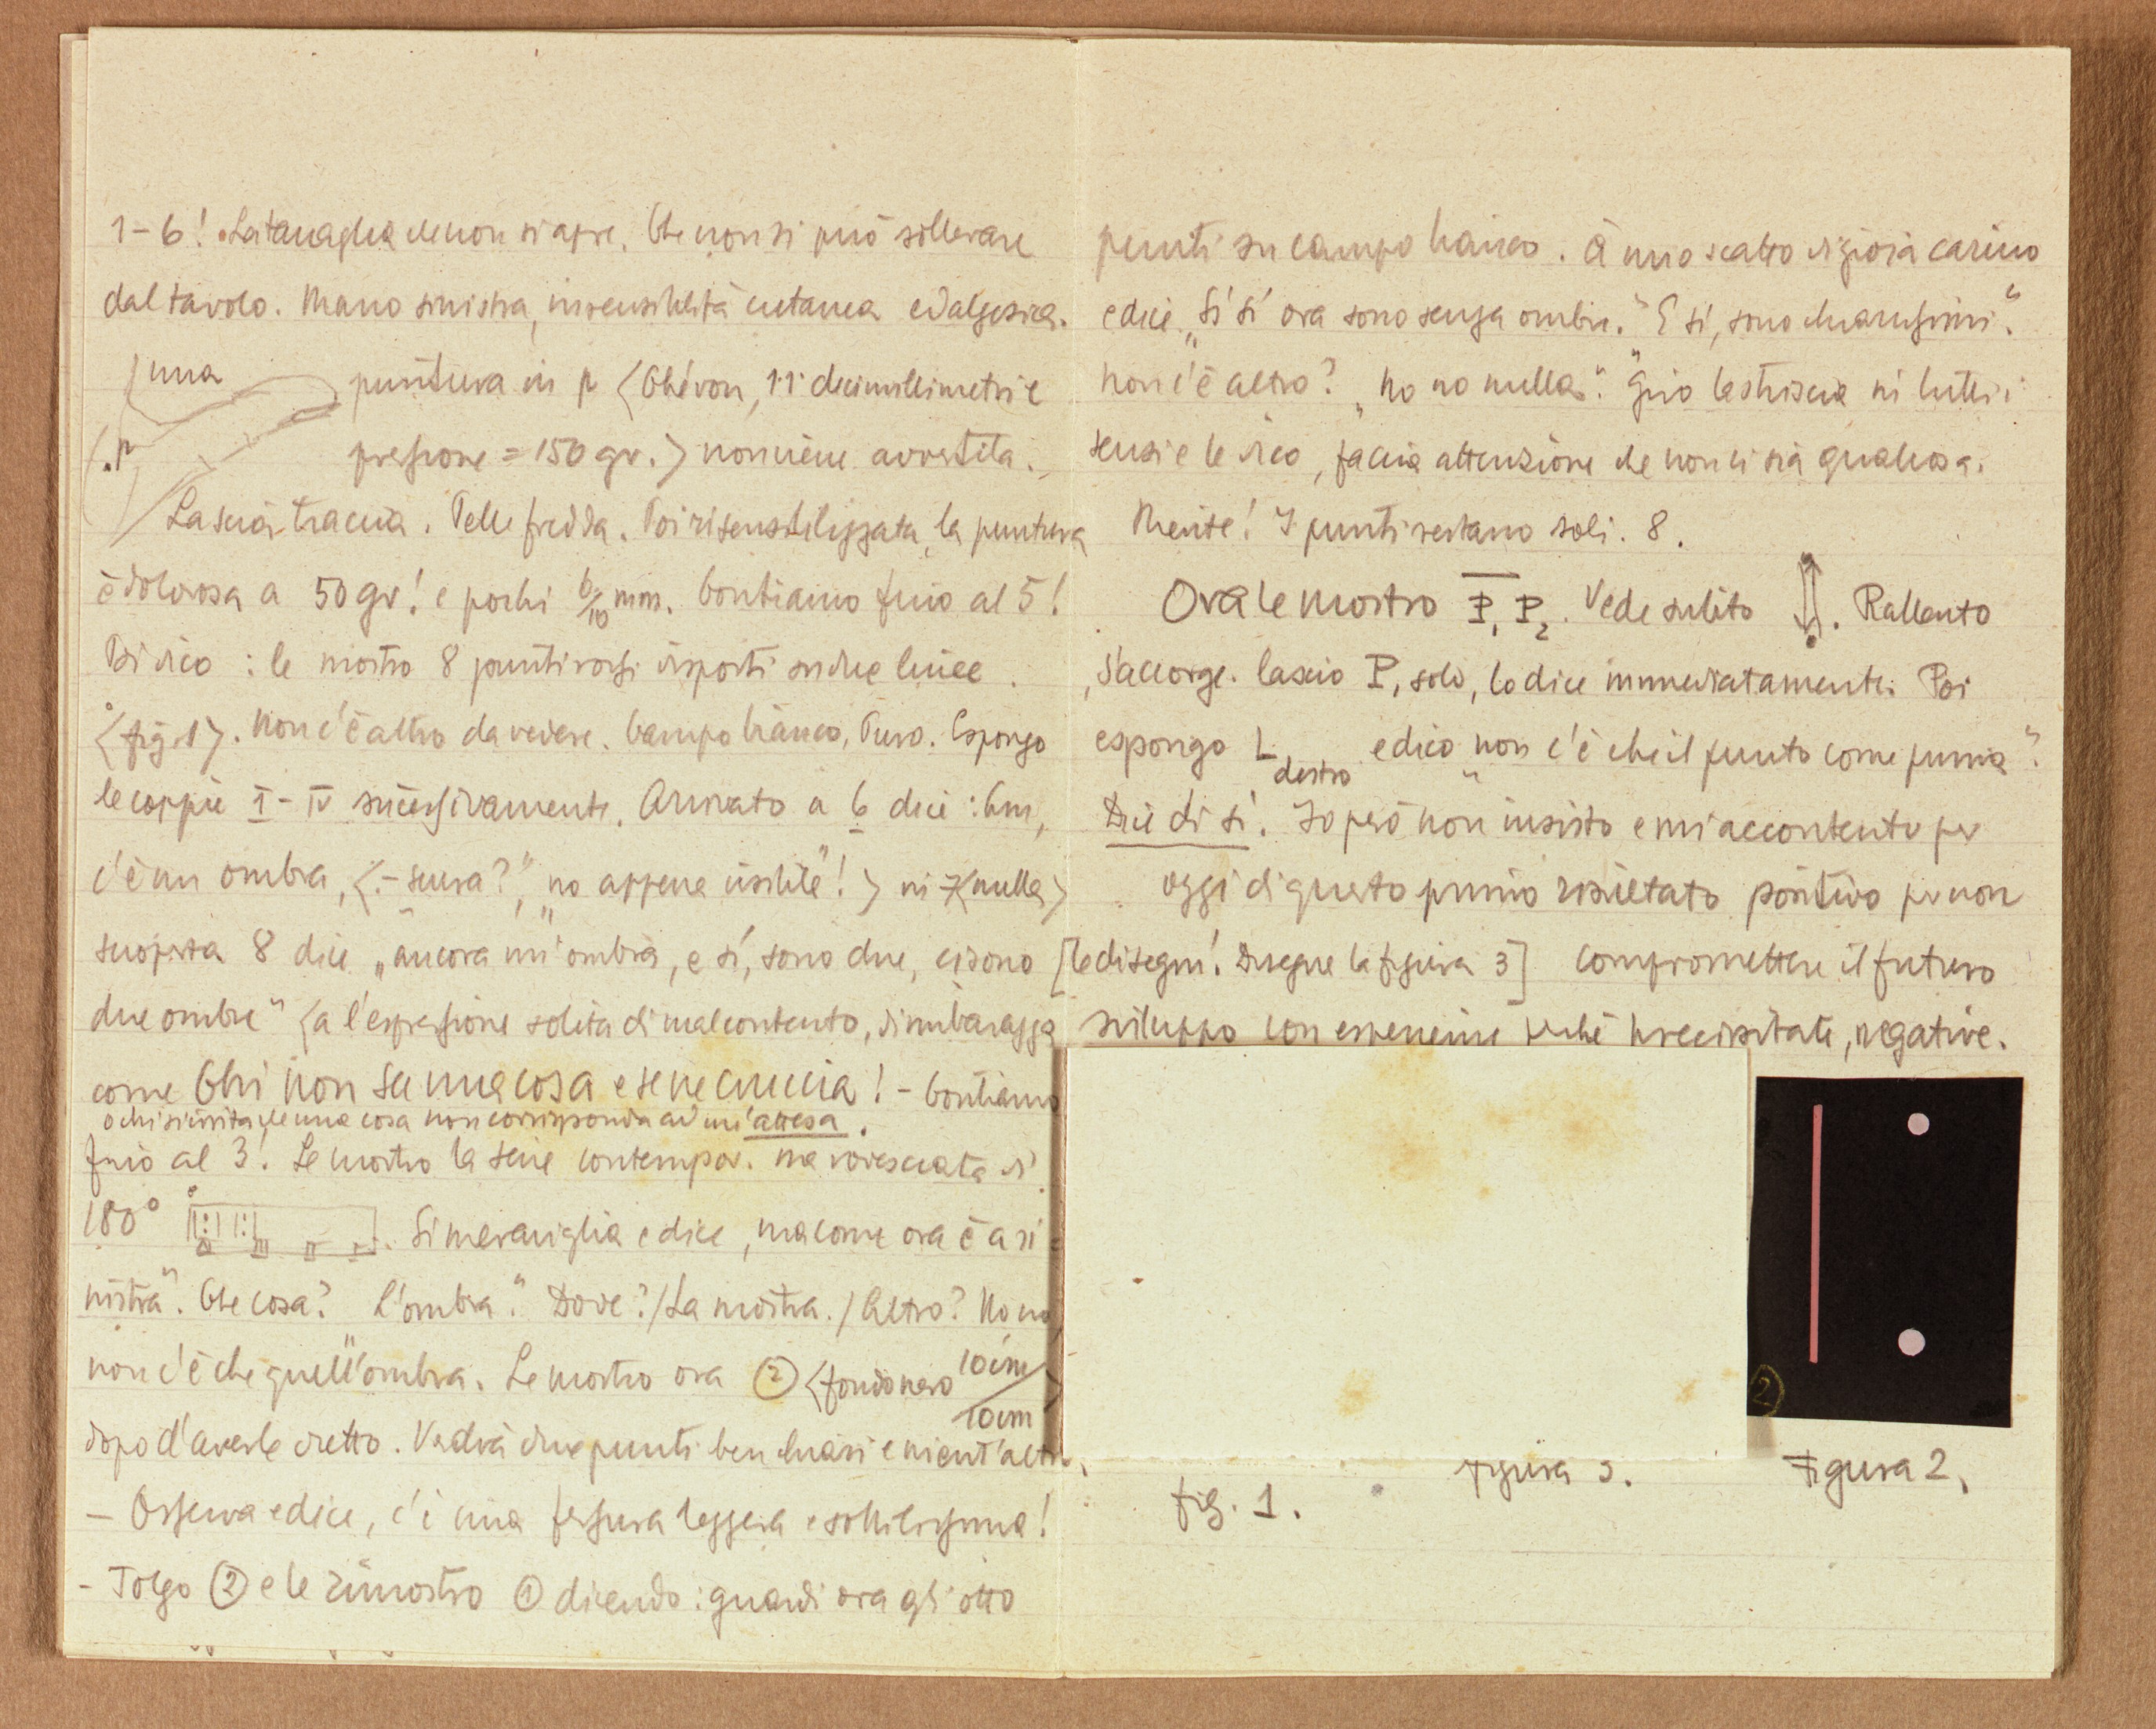 1-6! La tanaglia che non si apre. Che non si può sollevare
dal tavolo. Mano sinistra, insensibilità cutanea ed algesica.
una puntura in p <Chévon, 11 decimillimetri e
.p pressione = 150 gr.> non viene avvertita.
Lascia traccia. Pelle fredda. Poi risensibilizzata, la puntura
è dolorosa a 50 gr! e pochi 6/10 mm. Contiamo fino al 5!
Di dico : le mostro 8 punti rossi disposti su due linee.
<fig. 1>. Non c'è altro da vedere. Campo bianco, Puro. Espongo
le coppie I - IV successivamente. Arrivato a 6 dice : hm,
c'è un ombra, <:- scura?", "no appena visibile"!> ni 7 <nulla>
scoperta 8 dice "ancora un'ombra, e sí, sono due, ci sono
due ombre" <a l'espressione solita di malcontento, di
come Chi non sa una cosa e se ne cruccia! - Contiamo
o chi si irrita che una cosa non corrisponda ad un'attesa.
fino al 3! Le mostro la serie contempor. ma rovesciata di
180° III II I. Si meraviglia e dice, ma come ora è a si=
nistra". Che cosa? L'ombra". Dove?/La mostra./Altro? No no
non c'è che quell'ombra. Le mostro ora ② <fondo nero 10cm/10cm>
dopo d'averle detto. Vedrà due punti ben chiari e nient'altro.
- Osserva e dice, c'è una fessura leggera e sottilissima!
- Tolgo ② e le rimostro ① dicendo : guardi ora gli otto
punti su campo bianco. À uno scatto di gioia carino
e dice "Sí sí ora sono senza ombre." E sí, sono chiarissimi".
Non c'è altro? "No no nulla". Giro la striscia in tutti i
sensi e le dico, faccia attenzione che non ci sia qualcosa.
Niente! I punti restano soli. 8.
Ora le mostro P₁ P₂. Vede subito. Rallento
s'accorge. Lascio P₁ solo, lo dice immediatamente. Poi
espongo L destro e dico "non c'è che il punto come prima"?
Dice di sí. Io però non insisto e mi accontento per
oggi di questo primo risultato positivo per non
[le disegni! Disegna la figura 3] compromettere il futuro
sviluppo con esperienze precipitate, negative.
②
fig. 1.
Figura 3.
Figura 2.